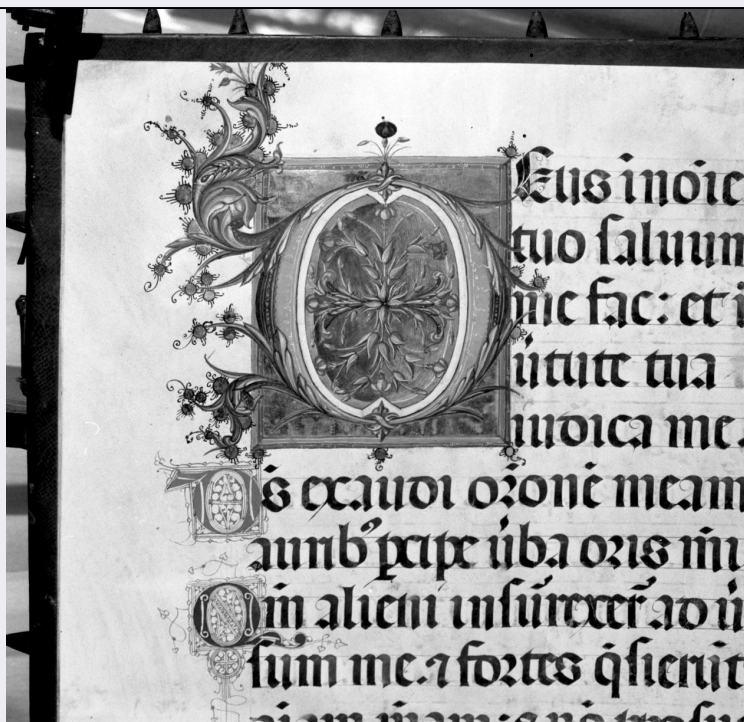 DEus i noīe
tuo saluum
me fac: et i
uītute tua
iudica me.
Ds exaudi oꝛonē meam
aurib᾽ ꝑcipe ūba oꝛis mi
Qm alieni insūrexer̄ ad ū
sum me. ⁊ foꝛtes q̄sierūt